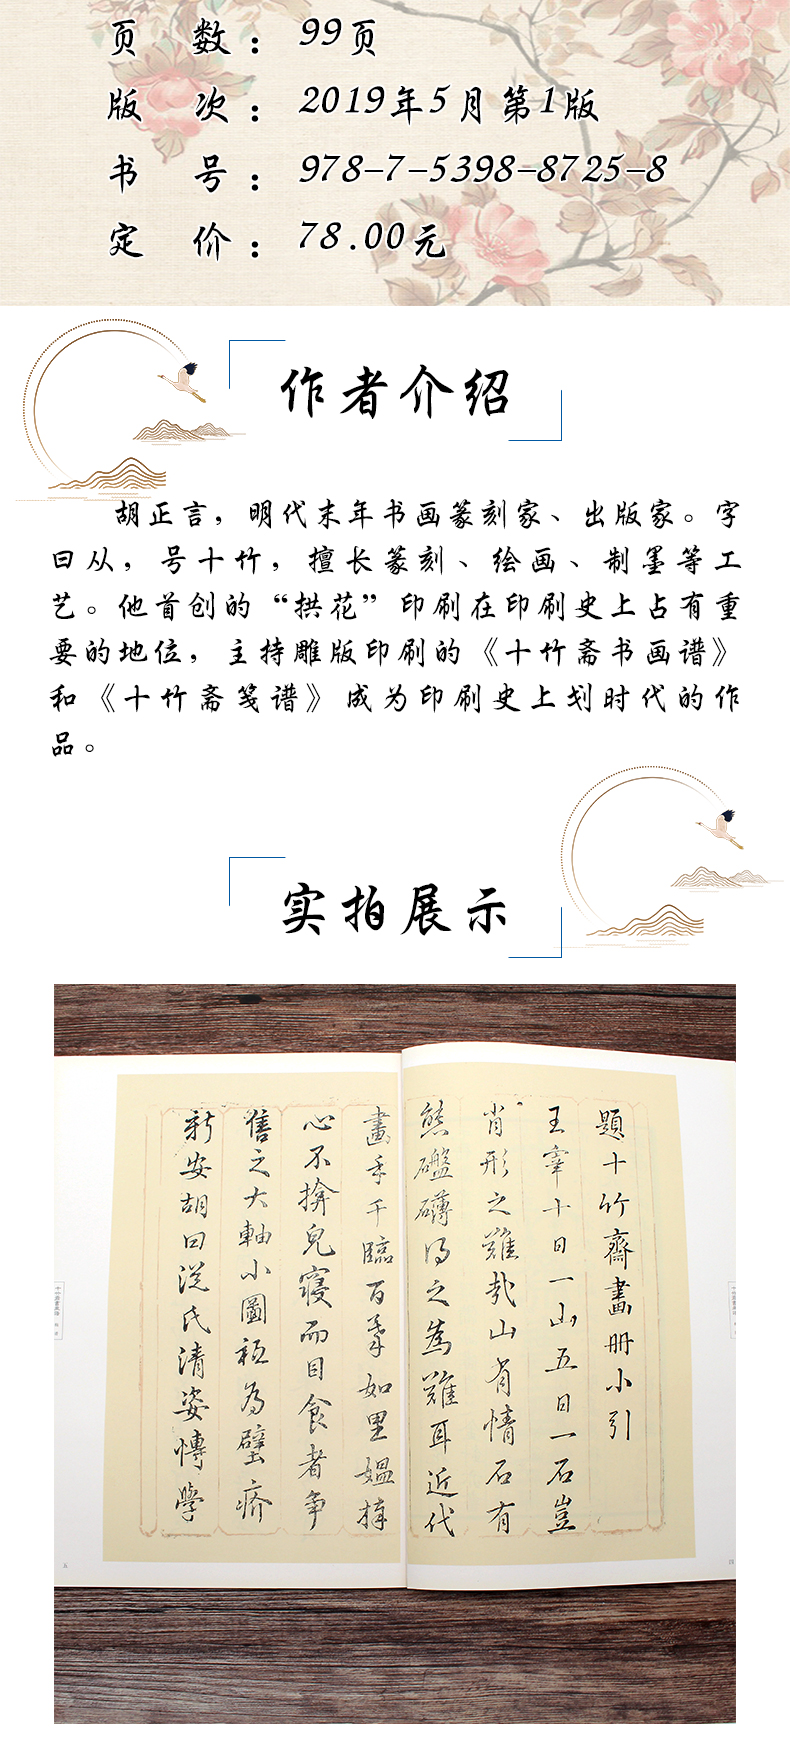 页 数：99页
版 次：2019年5月第1版
书 号：978-7-5398-8725-8
定 价：78.00元
作者介绍
胡正言，明代末年书画篆刻家、出版家。字
曰从，号十竹，擅长篆刻、绘画、制墨等工
艺。他首创的“拱花”印刷在印刷史上占有重
要的地位，主持雕版印刷的《十竹斋书画谱》
和《十竹斋笺谱》成为印刷史上划时代的作
品。
实拍展示
題十竹齋畫册小引
王宰十日一山五日一石豈
肖形之難哉山有情石有
態礛礴得之為難耳近代
畫手千臨百摹如里媪捧
心不揜兒寢而目食者争
售之大軸小圖秖為壁疥
新安胡曰從氏清姿慱學
四
五